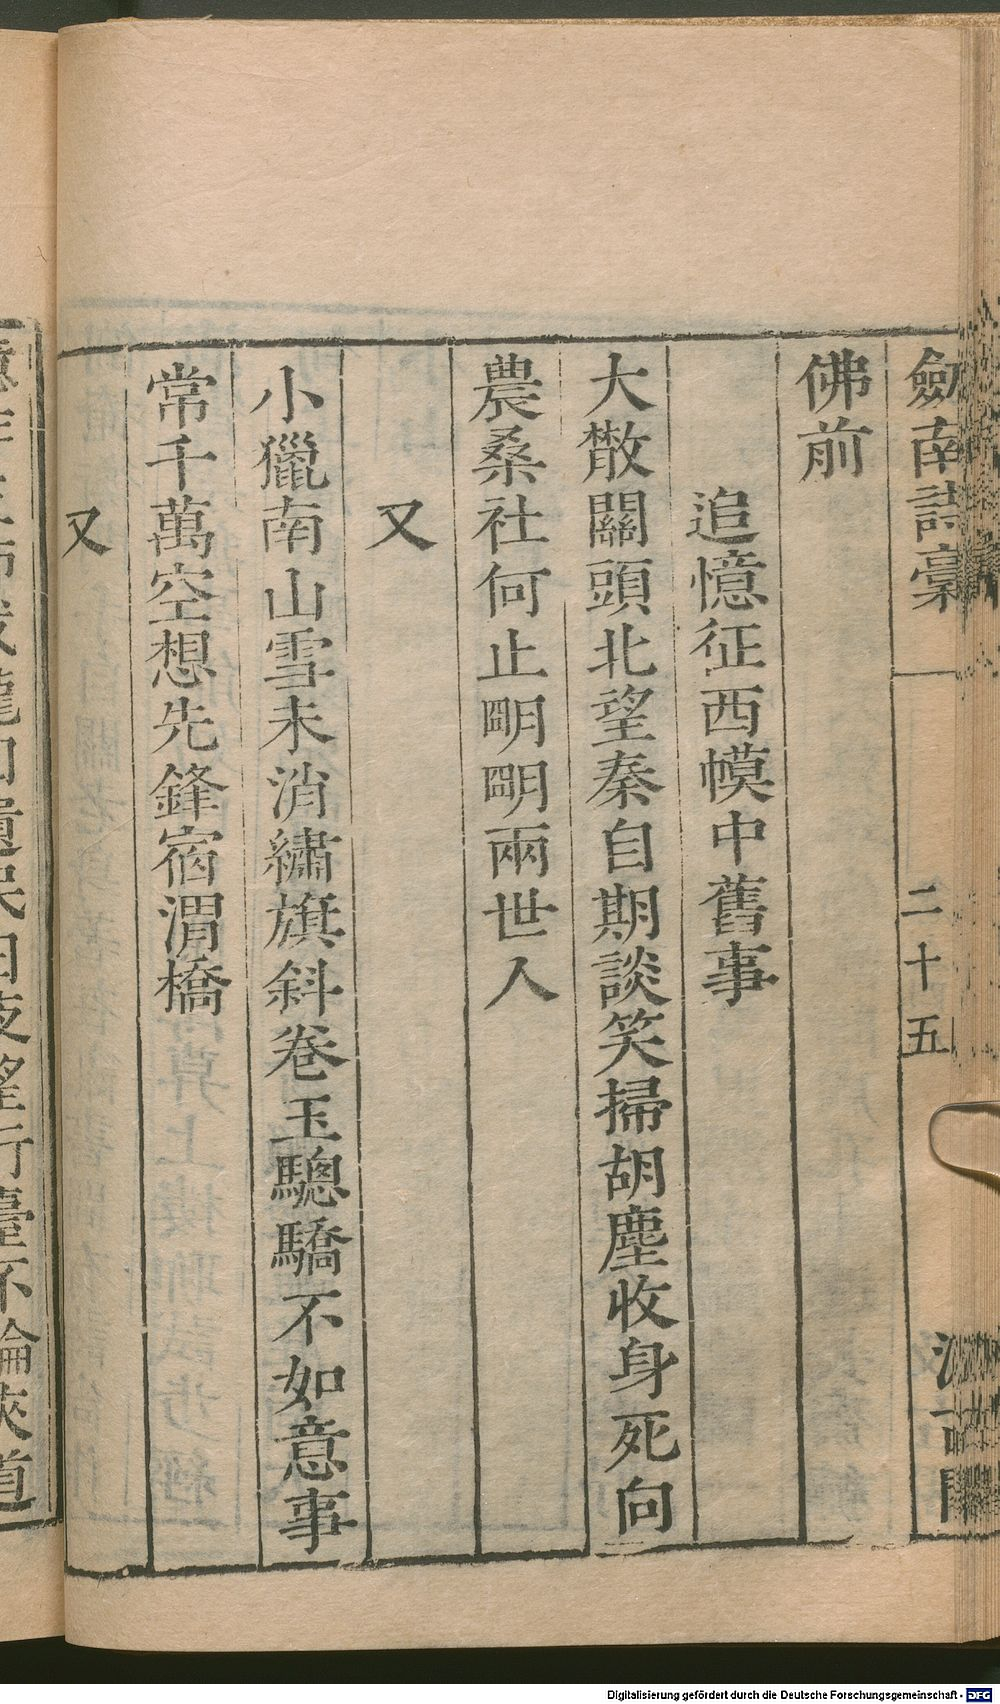 劒南詩稾
二十五
汲古閣
佛前
追憶征西幙中舊事
大散關頭北望秦自期談笑掃胡塵收身死向
農桑社何止朙朙兩世人
又
小獵南山雪未消繡旗斜卷玉驄驕不如意事
常千萬空想先鋒宿渭橋
又
憶昨王師戍隴回遺民日夜望行臺不論夾道
Digitalisierung gefördert durch die Deutsche Forschungsgemeinschaft - DFG